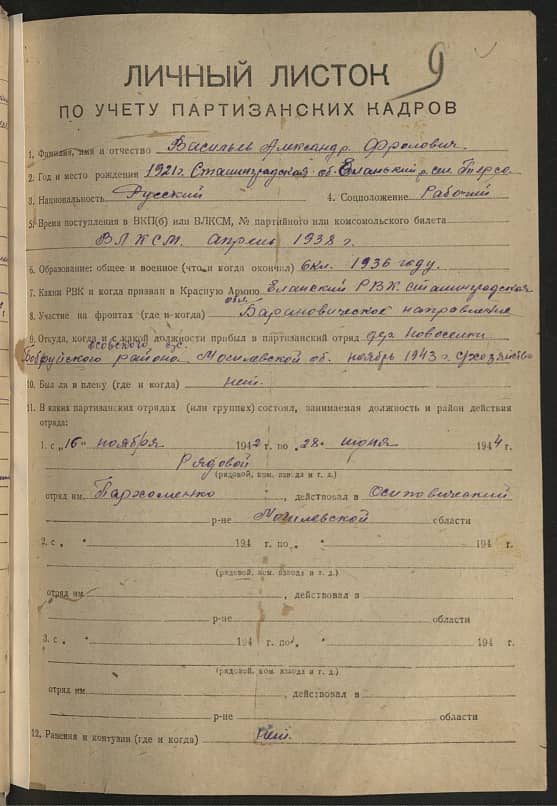 9
ЛИЧНЫЙ ЛИСТОК
ПО УЧЕТУ ПАРТИЗАНСКИХ КАДРОВ
1. Фамилия, имя и отчество Васильев Александр Фролович.
2. Год и место рождения 1921 г. Сталинградская об. Еланский р. сел. Терса
3. Национальность Русский 4. Соцположение Рабочий
5. Время поступления в ВКП(б) или ВЛКСМ, № партийного или комсомольского билета
ВЛКСМ. апрель 1938 г.
6. Образование: общее и военное (что и когда окончил) 6 кл. 1936 году.
7. Каким РВК и когда призван в Красную Армию Еланский РВК Сталинградская
обл.
8. Участие на фронтах (где и когда) Барановическое направление
9. Откуда, когда и с какой должности прибыл в партизанский отряд дер. Новоселки
Бобруйского района Могилевской об. ноябрь 1943 г. с/хозяйство
10. Был ли в плену (где и когда) нет.
11. В каких партизанских отрядах (или группах) состоял, занимаемая должность и район действия
отряда:
1. с „16" ноября 1942 г. по „28" июня 1944 г.
Рядовой
(рядовой, ком. взвода и т. д.)
отряд им. Пархоменко, действовал в Осиповический
р-не Могилевской области
2. с „ " 194 г. по „ " 194 г.
(рядовой, ком. взвода и т. д.)
отряд им. , действовал в
р-не области
3. с „ " 194 г. по „ " 194 г.
(рядовой, ком. взвода и т. д.)
отряд им. , действовал в
р-не области
12. Ранения и контузии (где и когда) нет.